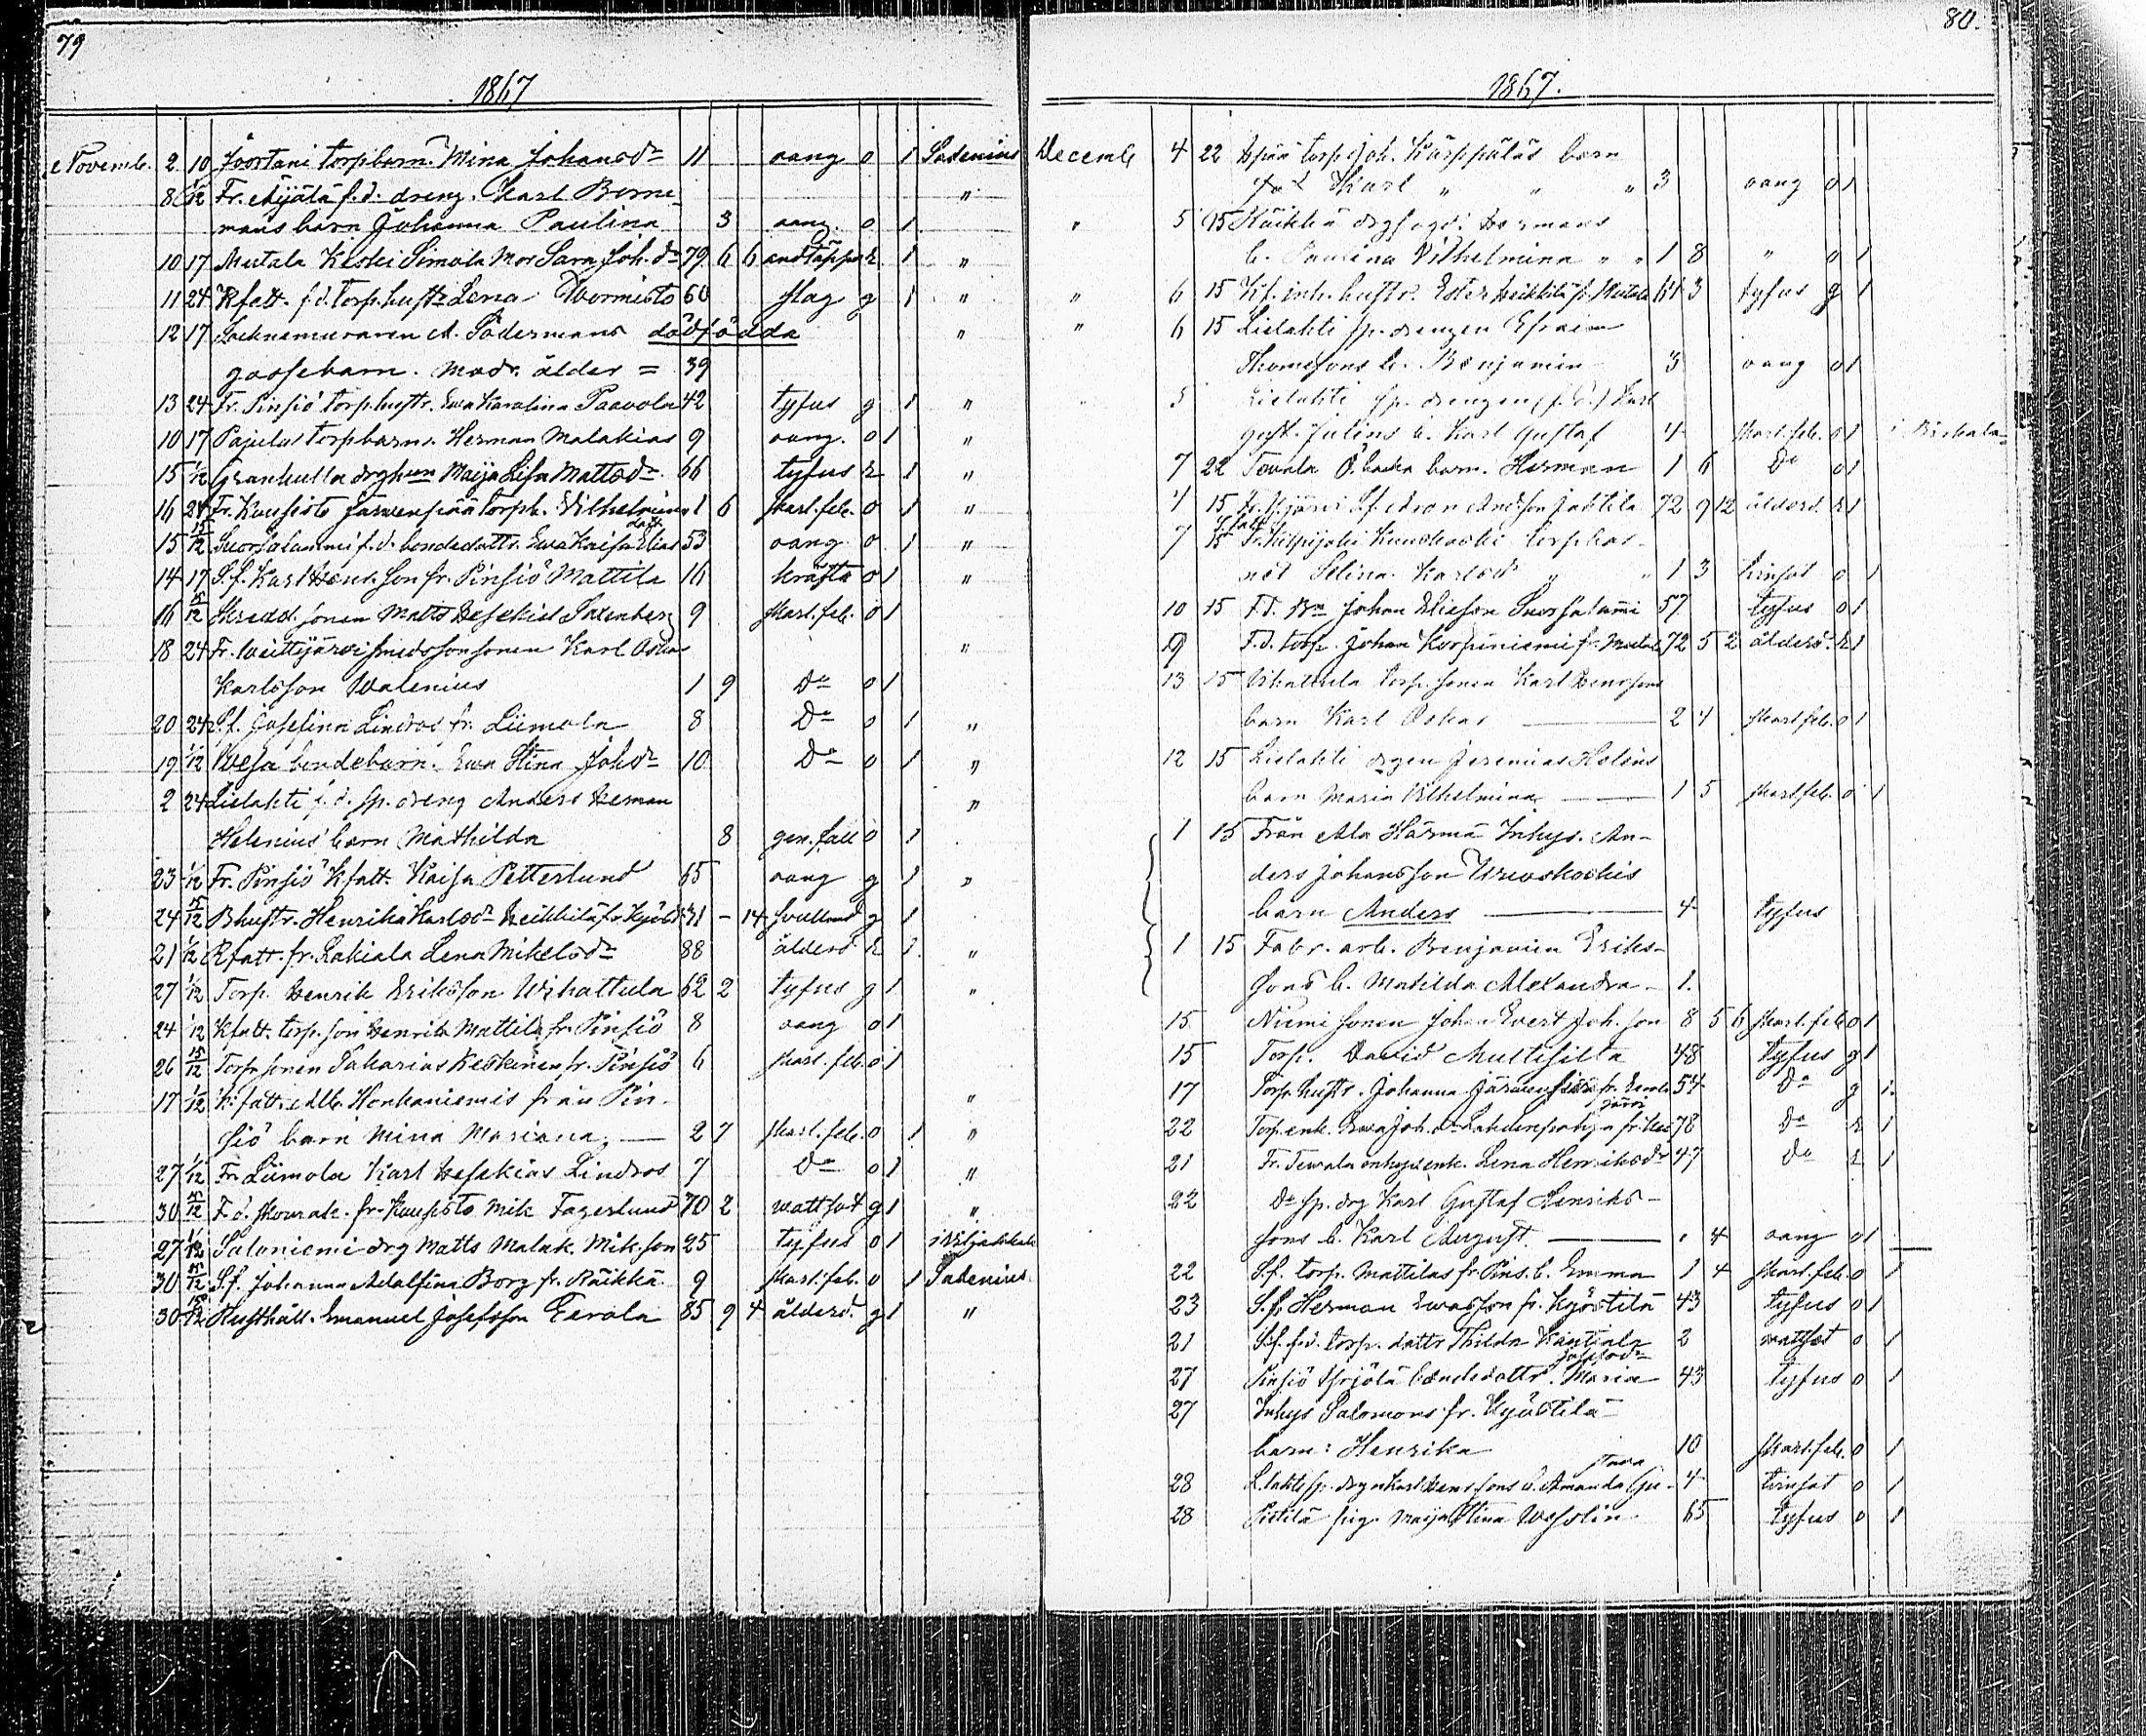 79
1867
Novemb. 2 10 Joostani torpbarn Mina Johansdr 11 oang o 1 Sadenius
8 1/12 Fr. Mijälä f.d. dreng. Karl Borne- "
mans barn Johanna Paulina 3 oang. o 1
10 17 Mutala Keski Simola Mor Sara Joh. dr 79 6 6 andtäppa e. 1 "
11 24 Kfatt. f.d. torp. hustr Lena Wormisto 60 slag g 1 "
12 17 Socknemuraren A. Södermans dödfödda "
gossebarn. Modr. ålder = 39
13 24 Fr. Pinsiö torp. hustr. Ewa Karolina Paavola 42 tyfus g 1 "
10 17 Pajulas torpbarn. Herman Malakias 9 oang. o 1 "
15 1/12 Grankulla Maija Lisa Mattsdr 66 tyfus e 1 "
16 24 Fr. Kuusisto Järwenpää torpb. Vilhelmina 1 6 skarl. feb. o 1 "
15 15/12 Suorsalammi f.d. bondedottr. Ewa Kaisa Elias dottr 53 oang o 1 "
14 17 S.f. Karl Hens. son fr. Pinsiö Mattila 16 kräfta o 1 "
16 15/12 Skredd. sonen Matts Hesekiel Saxenberg 9 skarl. feb. o 1
18 24 Fr. Weittijärvi smedssonsonen Karl Oskar "
Karlsson Walenius 1 9 Do o 1
20 24 S.f. Josefina Lindros fr. Liimola 8 Do o 1 "
19 1/12 Wesa bondebarn. Ewa Stina Johsdr 10 Do o 1 "
2 24 Lielahti f.d. sp. dreng Anders Herman "
Helenius' barn Mathilda 8 gen. fall o 1
23 1/12 Fr. Pinsiö Kfatt. Kaisa Petterlund 65 oang g 1 "
24 15/12 Bhustr. Henrika Karlsdr Heikkilä fr. Kyöst. 31 - 14 g 1
21 1/12 Rfatt. fr. Lakiala Lena Mikelsdr 88 ålderd e 1. "
27 1/12 Torp. Henrik Eriksson Wihattula 62 2 tyfus g 1 "
24 1/12 Kfatt. torp. son Henrik Mattila fr. Pinsiö 8 oang o 1
26 15/12 Torp. sonen Sakarias Keskinen fr. Pinsiö 6 skarl. feb. o 1
17 1/12 Kfatt. Alb. Honkaniemis från Pin- "
siö barn Mina Mariana. — 2 7 skarl. feb. o 1 "
27 1/12 Fr. Liimola Karl Hesekias Lindros 7 Do o 1 "
30 15/12 F.d. skomak. fr. Kuusisto Mik. Fagerlund 70 2 wattsot g 1 "
27 1/12 Saloniemi drg Matts Malak. Mik. son 25 tyfus o 1 i Wiljakkala
30 15/12 S.f. Johanna Adalfina Borg fr. Räikkä 9 skarl. feb. o 1 Sadenius
30 15/12 Husthåll. Emanuel Josefsson Eerola 85 9 4 ålderd. g 1 "
80.
1867.
Decemb 4 22 torp. Joh. Kärppäläs barn
Karl " " " 3 oang o 1
" 5 15 Räikkä Hermans
b. Paulina Vilhelmina " " 1 8 " o 1
" 6 15 Kf. inh. hustr. Ester Heikkilä fr. Mutala 61 3 tyfus g 1
" 6 15 Lielahti sp. drengen Efraim
Thomesons b. Benjamin 3 oang o 1
5 Lielahti sp. drengen (f.d.) Karl
Gust. Julins b. Karl Gustaf 4 skarl. feb. o 1 i Birkala
7 22 Tevala barn. Herman 1 6 Do o 1
4 15 Aron Andsson 72 9 12 ålderd. e 1
7 15 torpbar-
net Selina Karlsdr " " 1 3 o 1
10 15 F.d. Bn Johan Eliesson Suorsalami 57 tyfus o 1
19 F.d. torp. Johan Korpiniemi fr. Mutala 72 5 2 ålderd. e 1
13 15 Wihattula torp. sonen Karl Henrssons
barn Karl Oskar — 2 4 skarl. feb. o 1
12 15 Lielahti drgen Jeremias Holens
barn Maria Wilhelmina — 1 5 skarl. feb. o 1
1 15 Från Ala Härmä Inhys. An-
ders Johansson
barn Anders — 4 tyfus
1 15 Fabr. arb. Benjamin Eriks-
sons b. Matilda Alexandra — 1.
15 Niemi sonen Johan Evert Joh. son 8 5 6 skarl. feb o 1
15 Torp. David Multisilta 48 tyfus g 1
17 Torp. hustr. Johanna Järwensivu fr. 54 Do g 1.
22 Torp. enk. Ewa Joh. dr Lahdenpohja fr. järvi 78 Do e 1
21 Fr. Tevala inhysenk. Lena Henriksdr 47 Do e 1
22 Do sp. drg Karl Gustaf Henriks-
sons b. Karl August — " 4 oang o 1
22 S.f. torp. Mattilas fr. Pins. b. Emma 1 4 skarl. feb. o 1
23 S.f. Herman Ewasson fr. Kyöstilä 43 tyfus o 1
21 S.f. f.d. torp. dottr Thilda Kaitiala 2 wattsot o 1
27 Pinsiö Yrjölä bondedottr. Maria Josefsdr 43 tyfus o 1
27 Inhys Salomons fr. Kyöstilä
barn: Henrika 10 skarl. feb. o 1
28 L.lahti sp. drgn Karl Hens. sons b. Amanda Gu- stava 4 o 1
28 Pietilä pig. Maija Stina Wesslin 65 tyfus o 1